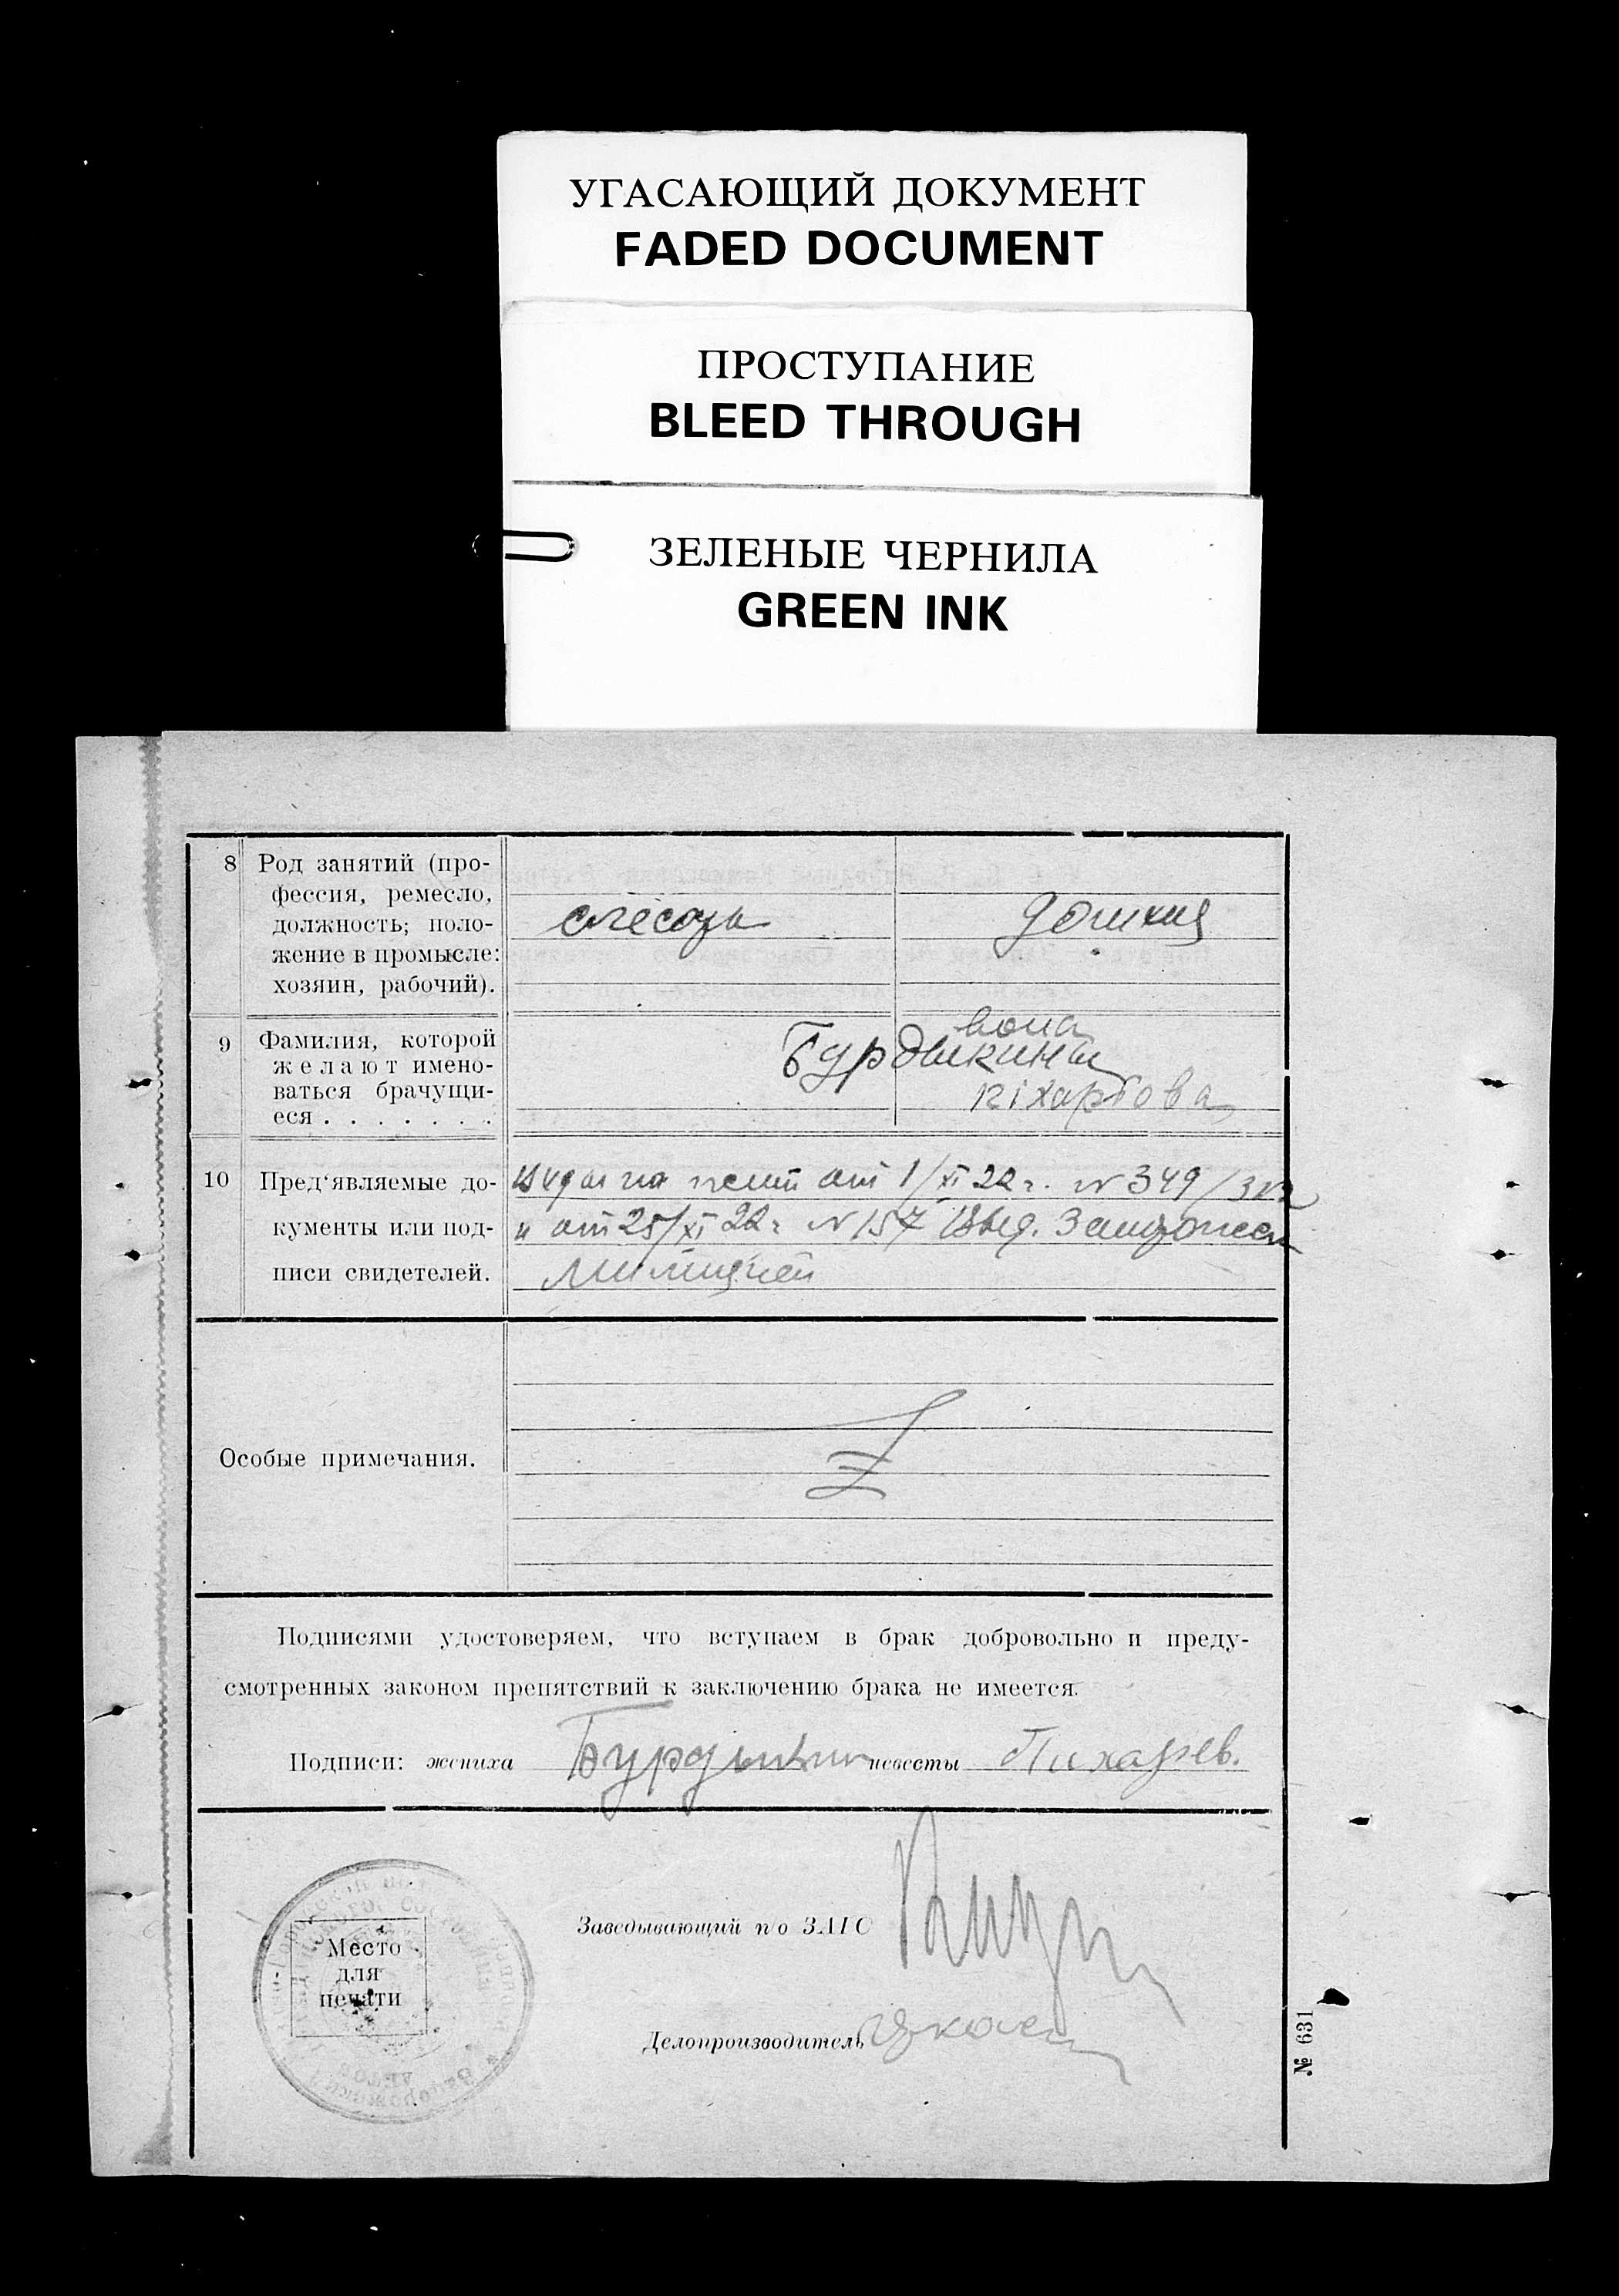 УГАСАЮЩИЙ ДОКУМЕНТ
FADED DOCUMENT
ПРОСТУПАНИЕ
BLEED THROUGH
ЗЕЛЕНЫЕ ЧЕРНИЛА
GREEN INK
8 Род занятий (про-
фессия, ремесло,
должность; поло-
жение в промысле:
хозяин, рабочий).
слесарь
9 Фамилия, которой
желают имено-
ваться брачущи-
еся . . . . . . .
вона
Бурдыкины
10 Пред‘являемые до-
кументы или под-
писи свидетелей.
от 1/XI 22 г. № 349/
и от 25/XI 22 г № 157
Милицией
Особые примечания.
Подписями удостоверяем, что вступаем в брак добровольно и преду-
смотренных законом препятствий к заключению брака не имеется.
Подписи: жениха Бурдыкин невесты Пихарев.
Заведывающий п/о ЗАГС
Место
для
печати
Делопроизводитель
№ 631